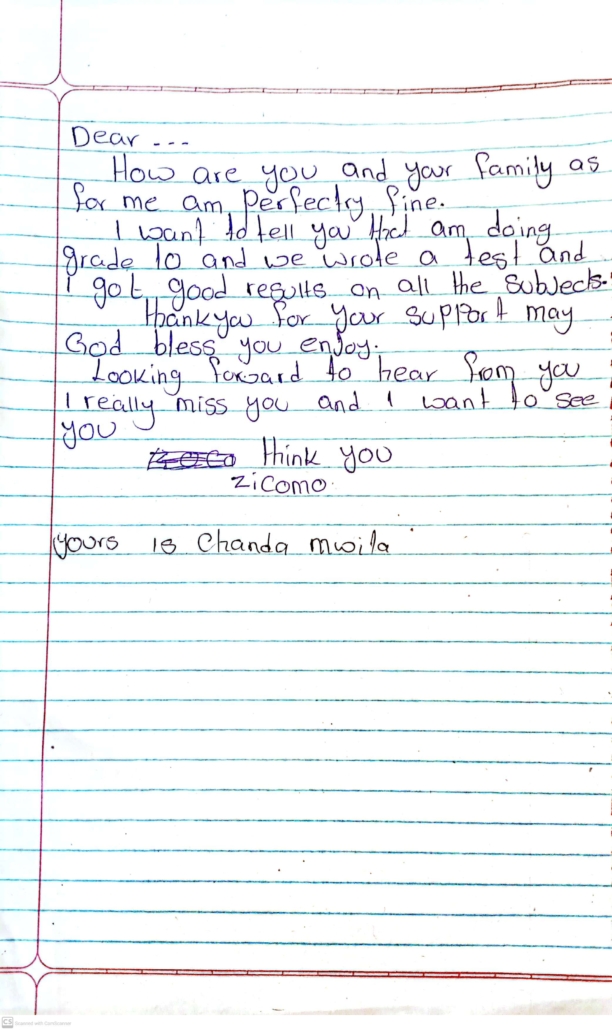 Dear ---
How are you and your family as
for me am perfectry fine.
I want to tell you that am doing
grade 10 and we wrote a test and
I got good results on all the subjects.
thankyou for your support may
God bless you enjoy.
Looking forward to hear from you
I really miss you and I want to see
you
think you
zicomo.
yours is Chanda mwila
CS Scanned with CamScanner